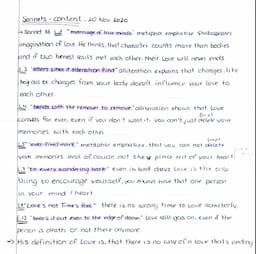 Sonnets - content. 20 Nov 2020
→ Sonnet 116 L1 "marriage of true minds" metaphor emphasise Shakespeares
imagination of love. He thinks, that character counts more than bodies
and if two honest souls met each other their love will never ends.
L3 "alters when it alteration finds" alliteration explains that changes, like
body changes from your body doesn't influence your love to
each other.
L4 "bends with the remover to remove" alliteration shows that love
consists for ever, even if you don't want it. you can't just delete your
memories with each other
L5 "ever-fixed mark" metaphor emphasise, that you can not delete
your memories and of course not the place out of your heart
L7 "to every wandering bark" even in bad days love is the only
thing to encourage yourself, you always have that one person
in your mind / heart.
L9 "Love's not Time's fool" there is no wrong time to love somebody
L12 "bears it out even to the edge of doom" love still goes on, even if the
person is death or not there anymore.
→ His definition of love is, that there is no way of n love that's ending